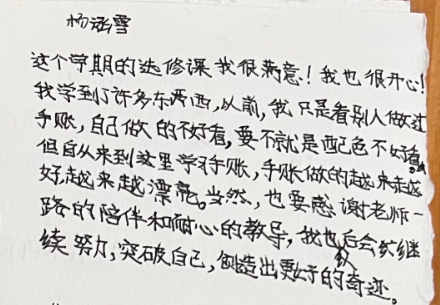 杨涵雪
这个学期的选修课我很满意！我也很开心！
我学到了许多东西，从前，我只是看别人做过
手账，自己做的不好看，要不就是配色不好看。
但自从来到这里学习手账，手账做的越来越
好，越来越漂亮。当然，也要感谢老师一
路的陪伴和耐心的教导，我也会继
续努力，突破自己，创造出更好的奇迹。